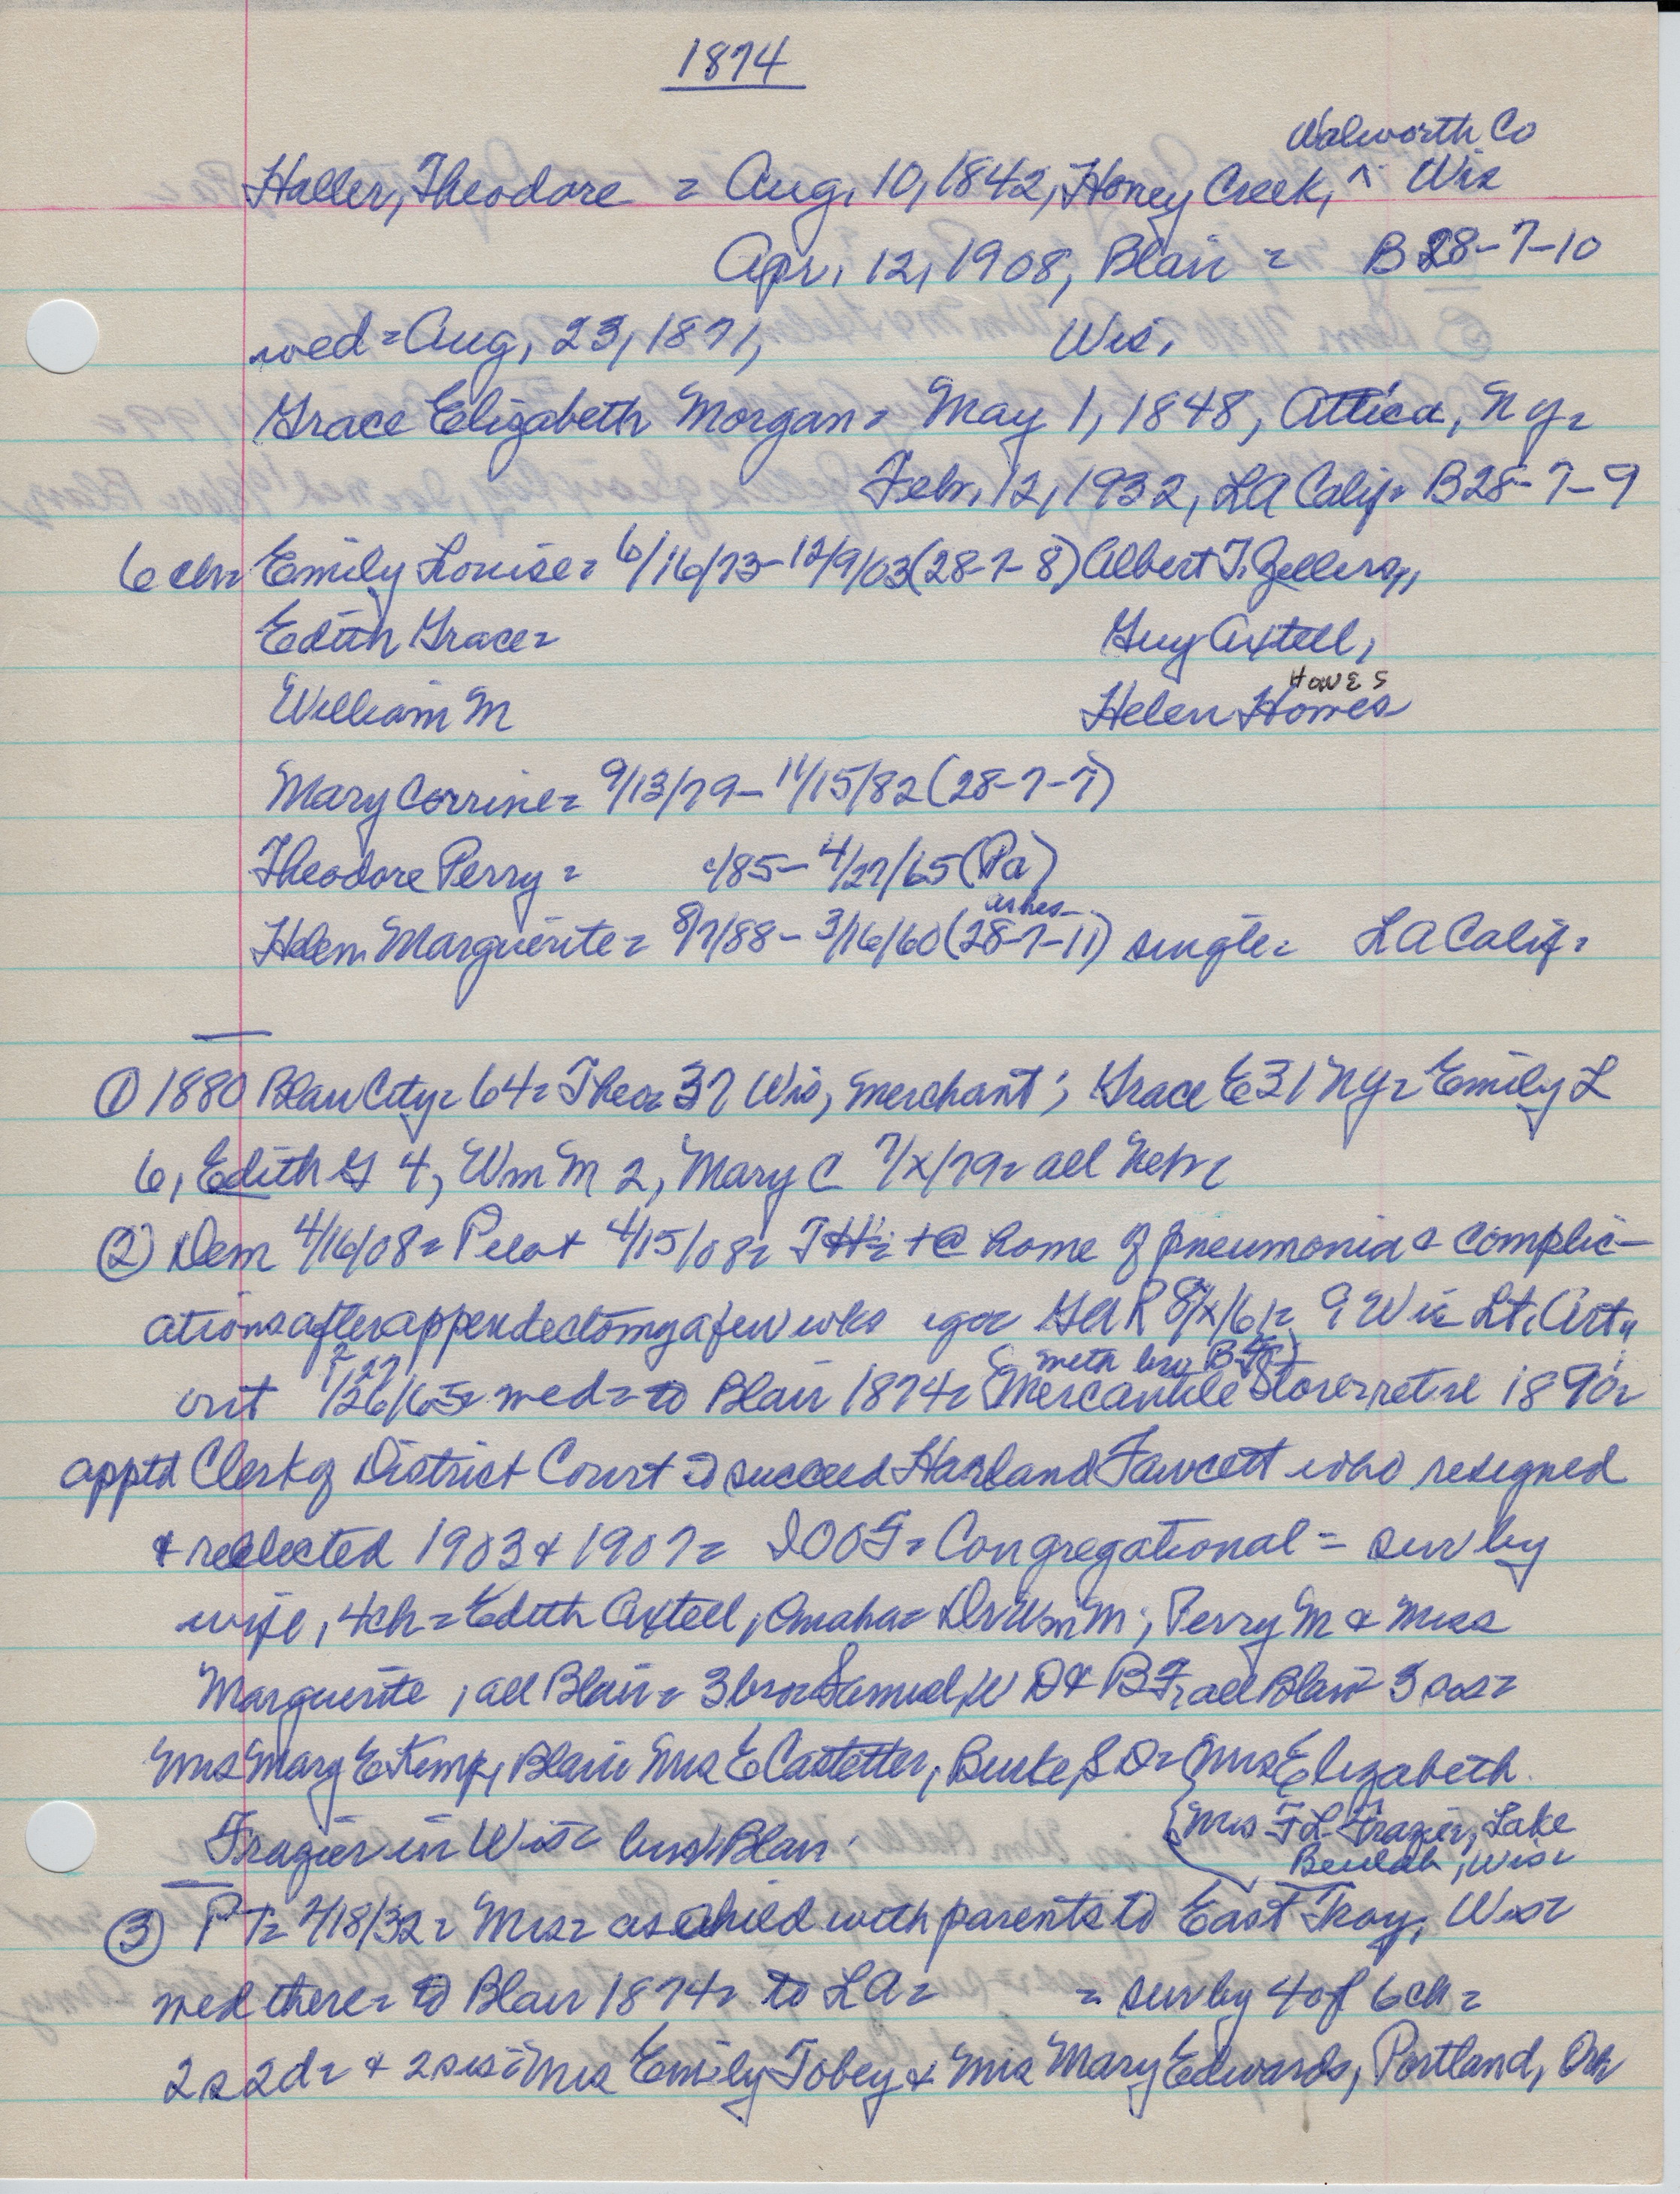 1874
Walworth Co
Haller, Theodore = Aug. 10, 1842, Honey Creek, ^ Wis
Apr. 12, 1908, Blair = B 28-7-10
wed = Aug. 23, 1871, Wis.
Grace Elizabeth Morgan = May 1, 1848, Attica, NY =
Febr. 12, 1932, LA Calif = B28-7-9
6 ch = Emily Louise = 6/16/73 - 12/9/03 (28-7-8) Albert T. Zellers,
Edith Grace = Guy Axtell,
HOWES
William M Helen Homes
Mary Corrine = 9/13/79 - 11/15/82 (28-7-7)
Theodore Perry = /85 - 4/27/65 (Pa)
ashes
Helen Marguerite = 8/7/88 - 3/16/60 (28-7-11) single = LA Calif =
① 1880 Blair City = 64 = Theo = 37 Wis, merchant; Grace E 31 NY = Emily L
6, Edith G 4, Wm M 2, Mary C 7/x/79 = all Nebr
② Dem 4/16/08 = Pilot 4/15/08 = TH = + @ home of pneumonia & complic-
ations after appendectomy a few wks ago = GAR 8/x/61 = 9 Wis Lt. Art.,
(meth bro BF)
out 1/26/65 = wed = to Blair 1874 = Mercantile Store = retire 1890 =
apptd Clerk of District Court to succeed Harland Fawcett who resigned
& reelected 1903 & 1907 = IOOF = Congregational = sur by
wife, 4 ch = Edith Axtell, Omaha = Dr Wm M; Perry M & Miss
Marguerite, all Blair = 3 bro = Samuel, W D & B F, all Blair = 3 sis =
Mrs Mary E Kemp, Blair Mrs E Castetter, Burke, S D = Mrs Elizabeth
Frazier in Wis = bur Blair
{ Mrs F L Frazier, Lake
Beulah, Wis =
③ PT = 2/18/32 = Mrs = as a child with parents to East Troy, Wis =
wed there = to Blair 1874 = to LA = = sur by 4 of 6 ch =
2 s 2 d = & 2 sis = Mrs Emily Tobey & Mrs Mary Edwards, Portland, Ore